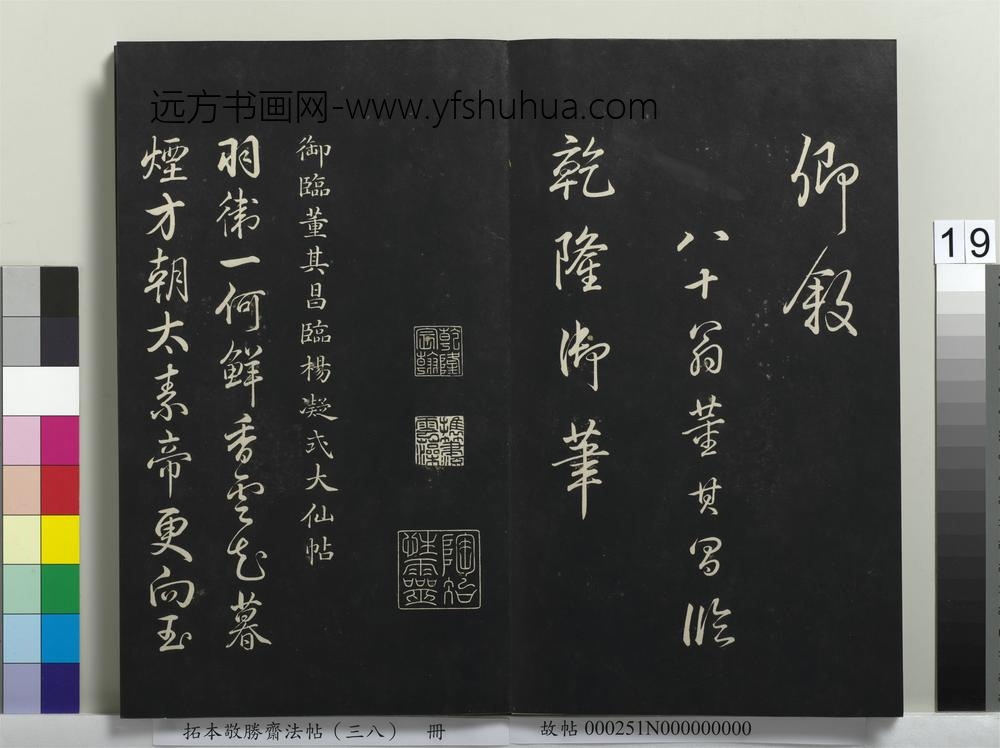 远方书画网-www.yfshuhua.com
19
卿叙
八十翁董其昌临
乾隆御筆
乾隆宸翰
摛藻雲漢
陶冶性靈
御臨董其昌臨楊凝式大仙帖
羽衛一何鮮香雲起暮
煙方朝太素帝更向玉
拓本敬勝齋法帖（三八） 冊
故帖 000251N000000000